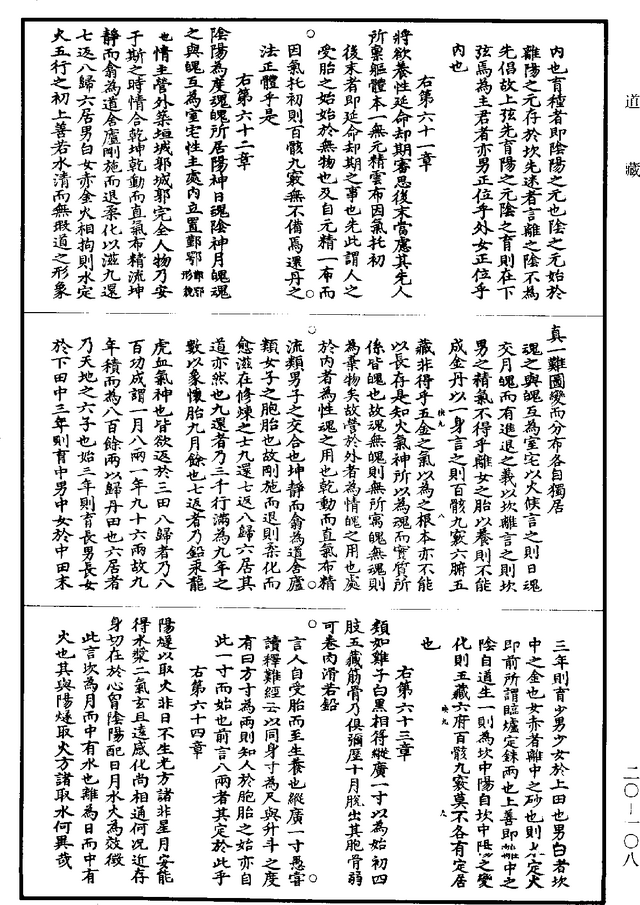 道藏
內也育種者即陰陽之元也陰之元始於
離陽之元存於坎先迷者言離之陰不為
先倡故上弦先育陽之元陰之育則在下
弦焉為主君者亦男正位乎外女正位乎
內也
右第六十一章
將欲養性延命却期審思後末當慮其先人
所稟軀體本一無元精雲布因氣托初
後末者即延命却期之事也先此謂人之
受胎之始始於無物也及自元精一布而
因氣托初則百骸九竅無不備焉還丹之
法正體乎是
右第六十二章
陰陽為度魂魄所居陽神日魂陰神月魄魂
之與魄互為室宅性主處內立置鄞鄂
也情主營外築垣城郭城郭完全人物乃安
于斯之時情合乾坤乾動而直氣布精流坤
靜而翕為道舍廬剛施而退柔化以滋九還
七返八歸六居男白女赤金火相拘則水定
火五行之初上善若水清而無瑕道之形象
真一難圖變而分布各自獨居
魂之與魄互為室宅以火候言之則日魂
交月魄而有進退之義以坎離言之則坎
男之精氣不得乎離女之胎以養則不能
成金丹以一身言之則百骸九竅六腑五
藏非得乎五金之氣以為之根本亦不能
以長存是知火氣神所以為魂而實質所
係皆魄也故魂無魄則無所寓魄無魂則
為棄物矣故營於外者為情魄之用也處
於內者為性魂之用也乾動而直氣布精
流類男子之交合也坤靜而翕為道舍廬
類女子之胞胎也故剛施而退則柔化而
愈滋在修煉之士九還七返八歸六居其
道亦然也九還者乃三千行滿為九年之
數以象懷胎九月餘也七返者乃鉛汞龍
虎血氣神也皆欲返於三田八歸者乃八
百功成謂一月八兩一年九十六兩故九
年積而為八百餘兩以歸丹田也六居者
乃天地之六子也始三年則育長男長女
於下田中三年則育中男中女於中田末
三年則育少男少女於上田也男白者坎
中之金也女赤者離中之砂也則水定火
即前所謂臨爐定銖兩也上善即離中之
陰自道生一則為坎中陽自坎中陽之變
化則五藏六府百骸九竅莫不各有定居
也
右第六十三章
類如雞子白黑相得縱廣一寸以為始初四
肢五藏筋骨乃俱彌歷十月脫出其胞骨弱
可卷肉滑若鉛
言人自受胎而至生養也縱廣一寸愚嘗
讀釋難經云以同身寸為尺與升斗之度
有曰方寸為兩則知人於胞胎之始亦自
此一寸而始也前言八兩者其定於此乎
右第六十四章
陽燧以取火非日不生光方諸非星月安能
得水漿二氣玄且遠感化尚相通何況近存
身切在於心胷陰陽配日月水火為效徵
此言坎為月而中有水也離為日而中有
火也其與陽燧取火方諸取水何異哉
二〇—一〇八